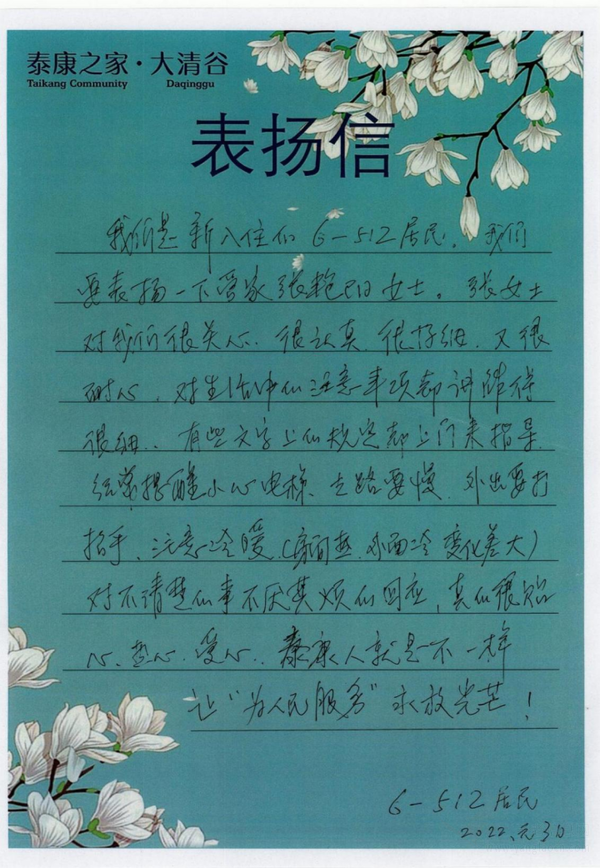 泰康之家·大清谷
Taikang Community Daqinggu
表扬信
我们是新入住的6-512居民。我们
要表扬一下管家张艳女士。张女士
对我们很关心、很认真、很仔细、又很
耐心,对生活中的注意事项都讲解得
很细、有些文字上的规定都上门来指导
经常提醒小心电梯、走路要慢、外出要打
招乎、注意冷暖、(房间热、外面冷 变化差大)
对不清楚的事不厌其烦的回应,真的很贴
心、热心、爱心、泰康人就是不一样
让“为人民服务”永放光芒!
6-512居民
2022、元、3日